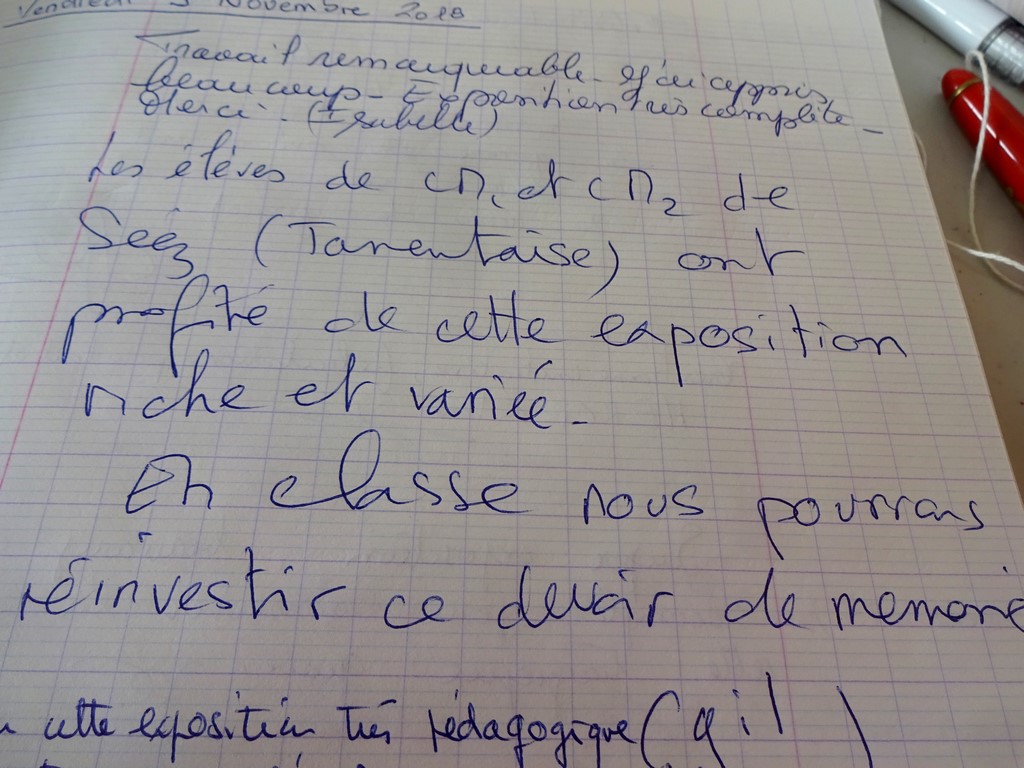 Vendredi 9 Novembre 2018
Travail remarquable. J'ai appris
beaucoup - Exposition très complète -
Merci - (Isabelle)
Les élèves de CM1 et CM2 de
Séez (Tarentaise) ont
profité de cette exposition
riche et variée -
En classe nous pourrons
réinvestir ce devoir de mémoire
cette exposition très pédagogique (gil)